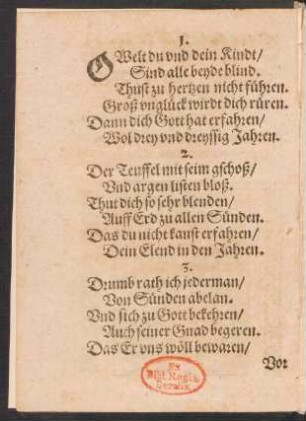 1.
O Welt du vnd dein Kindt/
Sind alle beyde blind.
Thust zu hertzen nicht führen.
Groß vnglück wirdt dich rüren.
Dann dich Gott hat erfahren/
Wol drey vnd dreyssig Jahren.
2.
Der Teuffel mit seim gschoß/
Vnd argen listen bloß.
Thut dich so sehr blenden/
Auff Erd zu allen Sünden.
Das du nicht kanst erfahren/
Dein Elend in den Jahren.
3.
Drumb rath ich jederman/
Von Sünden abelan.
Vnd sich zu Gott bekehren/
Auch seiner Gnad begeren.
Das Er vns wöll bewaren/
Vor
Ex
Bibl. Regia
Berolin.